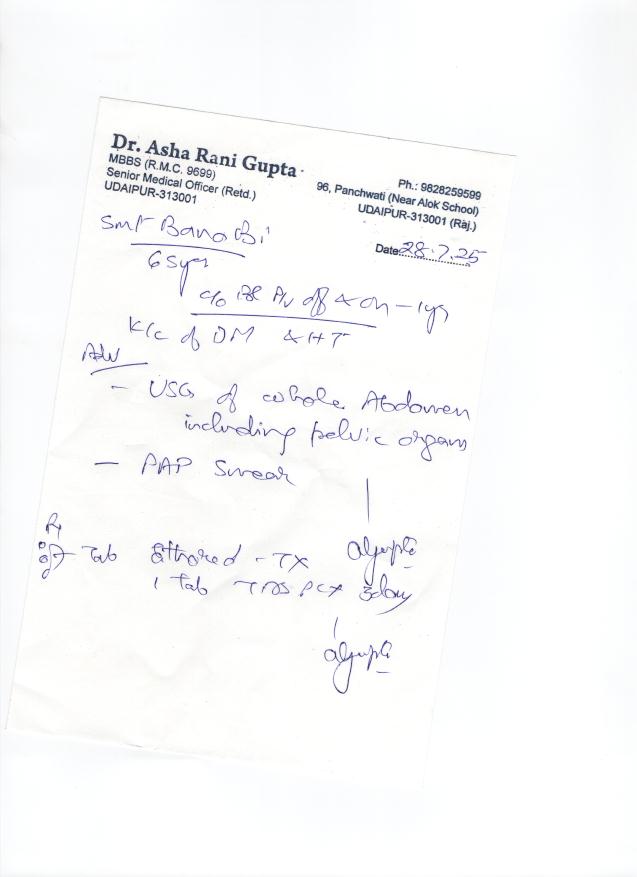 Dr. Asha Rani Gupta
MBBS (R.M.C. 9699)
Senior Medical Officer (Retd.)
UDAIPUR-313001
Ph.: 9828259599
96, Panchwati (Near Alok School)
UDAIPUR-313001 (Raj.)
Date 28.7.25
Smt Bano Bi
65 yrs
c/o Bl P/V off & on - 1 yr
K/C of DM & HT
Adv
- USG of whole Abdomen
including pelvic organs
- PAP Smear
Rx
Tab - TX
1 Tab TDS PC x 3 day